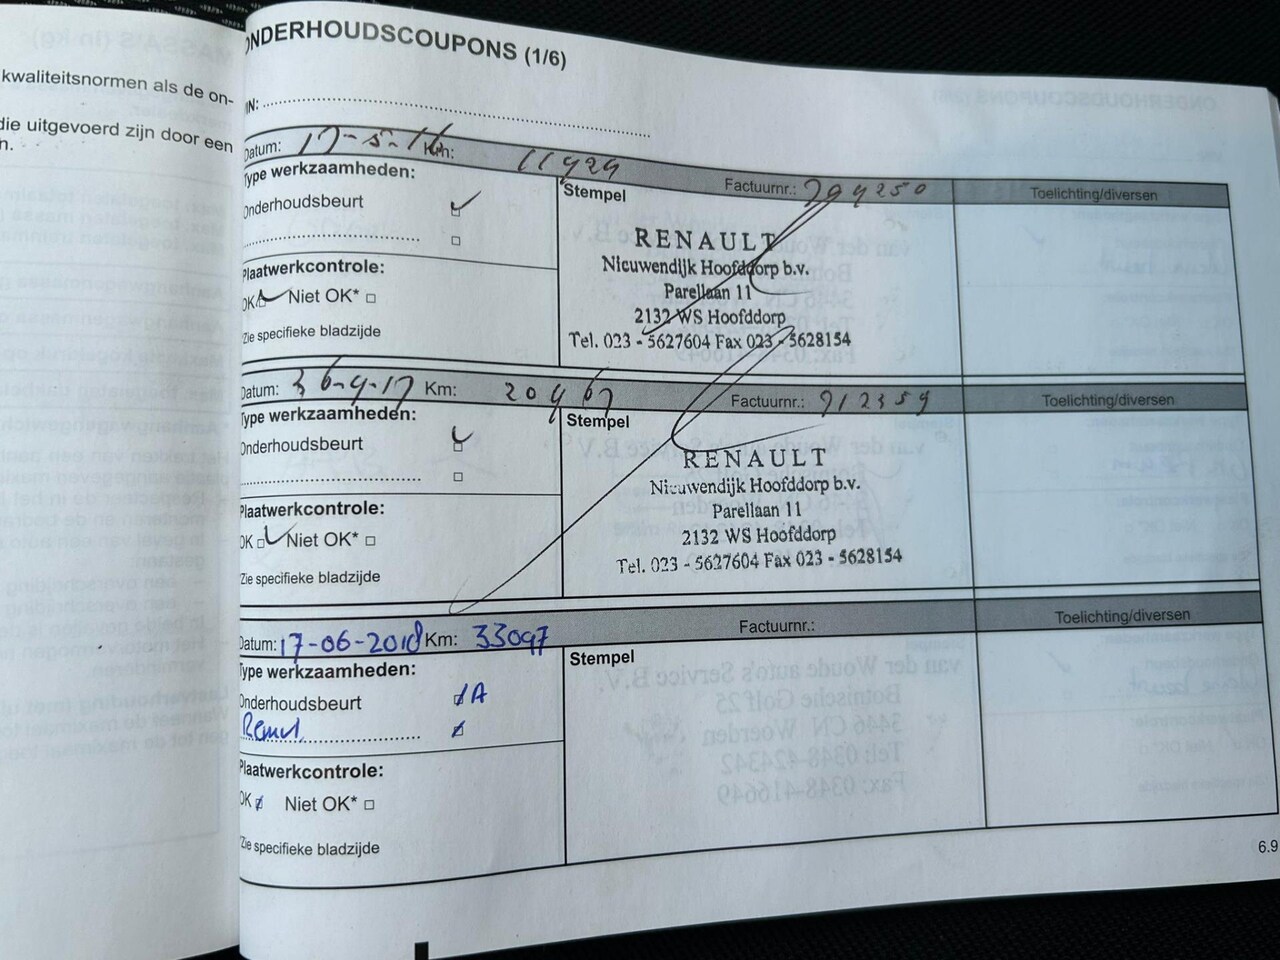 kwaliteitsnormen als de on-
die uitgevoerd zijn door een
ONDERHOUDSCOUPONS (1/6)
Datum: 17-5-16 Km: 11929 Factuurnr.: Toelichting/diversen
Type werkzaamheden: Stempel
Onderhoudsbeurt
Plaatwerkcontrole:
OK Niet OK*
*Zie specifieke bladzijde
RENAULT
Nieuwendijk Hoofddorp b.v.
Parellaan 11
2132 WS Hoofddorp
Tel. 023 - 5627604 Fax 023 - 5628154
Datum: Km: 20967 Factuurnr.: 912359 Toelichting/diversen
Type werkzaamheden: Stempel
Onderhoudsbeurt
Plaatwerkcontrole:
OK Niet OK*
*Zie specifieke bladzijde
RENAULT
Nieuwendijk Hoofddorp b.v.
Parellaan 11
2132 WS Hoofddorp
Tel. 023 - 5627604 Fax 023 - 5628154
Datum: 17-06-2018 Km: 33097 Factuurnr.: Toelichting/diversen
Type werkzaamheden: Stempel
Onderhoudsbeurt A
Plaatwerkcontrole:
OK Niet OK*
*Zie specifieke bladzijde
6.9